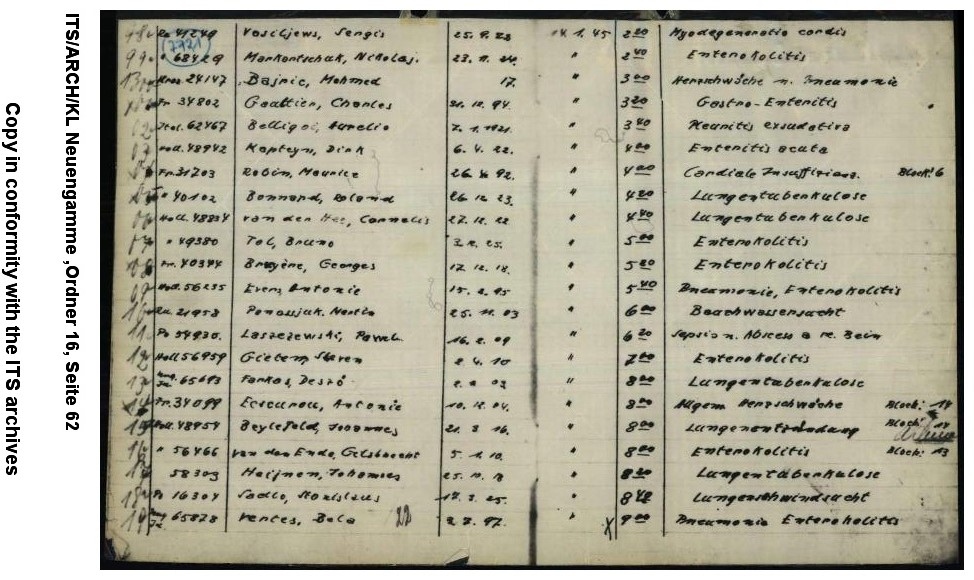 ITS/ARCH/KL Neuengamme ,Ordner 16, Seite 62
Copy in conformity with the ITS archives
Ru 41249 Vasiljews, Sergis 25. 9. 23 14.1.45 2 20 Myodegeneratio cordis
(2721)
" 68429 Markontschak, Nikolaj. 23. 11. 24. " 2 40 Enterokolitis
24147 Bajric, Mohmed 17. " 3 00 Herzschwäche n. Pneumonie
Fr 34802 Gaultier, Charles 21. 12. 94. " 3 20 Gastro-Enteritis
Ital. 62467 Aurelio 7. 1. 1921. " 3 40 Pleuritis exsudativa
Holl. 48942 Kapteyn, Dirk 6. 4. 22. " 4 00 Enteritis acuta
Fr 31203 Robin, Maurice 92. " 4 00 Cardiale Block: 6
" 40102 Bonnard, Roland 26 12 23. " 4 20 Lungentuberkulose
Holl. van den Cornelis 27. 12. 22 " 4 40 Lungentuberkulose
" 49380 Tol, Bruno 25. " 5 00 Enterokolitis
Fr. 40344 Bruyère, Georges 17. 12. 18. " 5 20 Enterokolitis
Holl. 56235 Antonie 15. 2. 95 " 5 40 Pneumonie, Enterokolitis
Ru 21958 25. 11. 03 " 6 00 Bauchwassersucht
Po 54930. Laszezewski, Pawel. 16. 2. 09 " 6 20 Sepsis n. Abscess a re. Bein
Holl 56959 2. 4. 10 " 7 00 Enterokolitis
65693 Farkas, Deszö 03 " 8 00 Lungentuberkulose
Fr. 34099 Antonie 10. 12. 04. " 8 00 Allgem Herzschwäche Block: 14
Holl. 48954 Beylefeld, Johannes 21. 3 16. " 8 00 Lungenentzündung Block: 14
" 56466 van den Ende, Gisbrecht 5. 1. 10. " 8 00 Enterokolitis Block: 13
58303 Heijnen, Johannes 25. 11. 18 " 8 20 Lungentuberkulose
Po 16304 Sadlo, Stanislaus 3. 25. " 8 40 Lungenschwindsucht
65828 Ventes, Bela 22 2 7. 97. " X 9 00 Pneumonia Enterokolitis